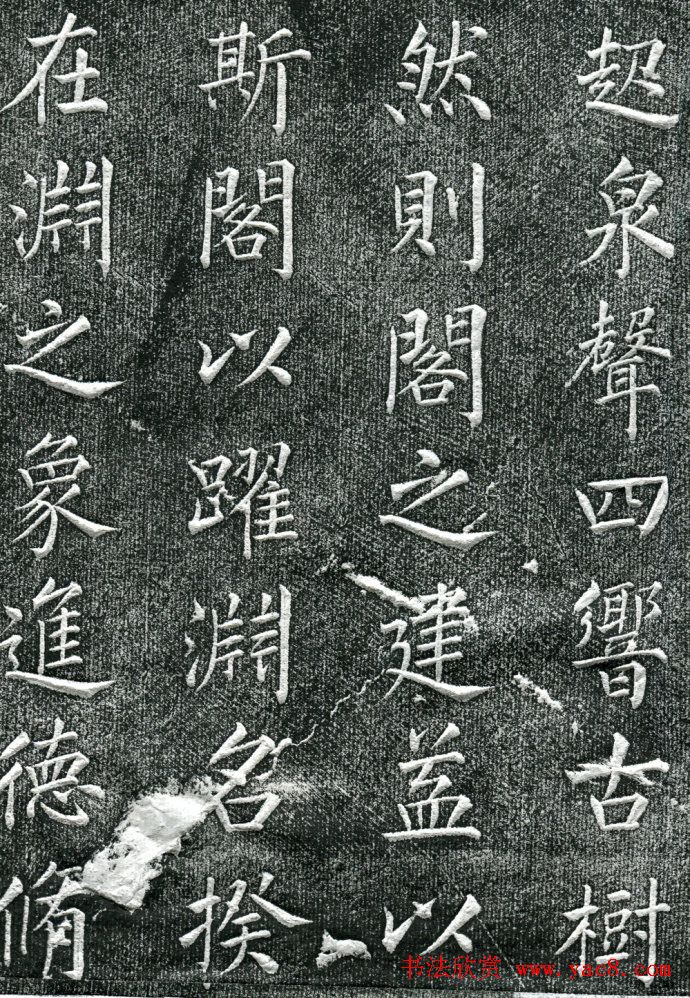 起泉聲四響古樹
然則閣之建盖以
斯閣以躍淵名揆
在淵之象進德脩
书法欣赏 www.yac8.com